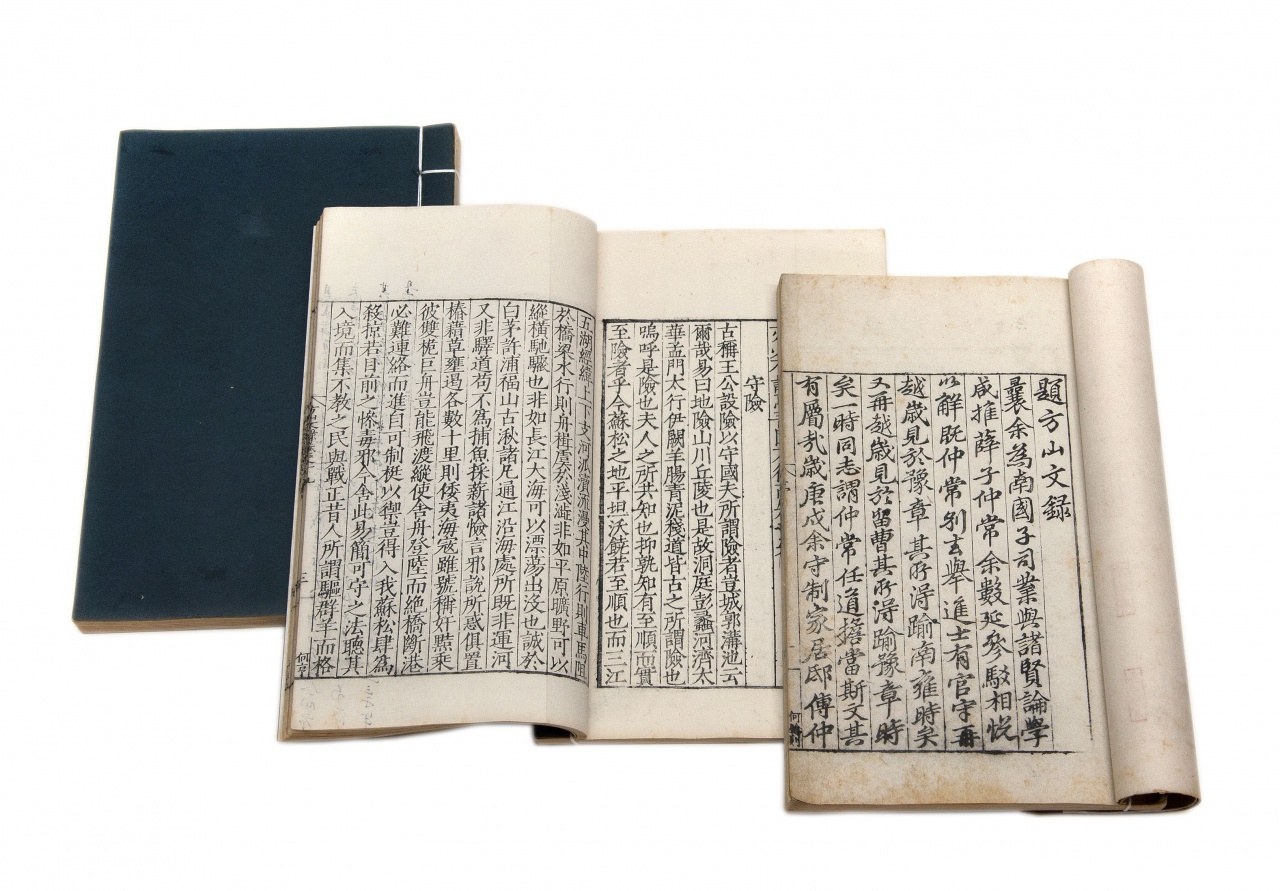 題方山文録
曩余為南國子司業與諸賢論學
咸推薛子仲常余數延參駁相悅
以解既仲常別去舉進士有官守再
越歲見於豫章其所淂踰南雍時矣
又再越歲見於留曹其所淂踰豫章時
矣一時同志謂仲常任道擔當斯文其
有屬㢤歲庚戌余守制家居邸傳仲
守險
古稱王公設險以守國夫所謂險者豈城郭溝池云
爾哉易曰地險山川丘陵也是故洞庭彭蠡河濟太
華孟門太行伊闕羊腸青泥棧道皆古之所謂險也
嗚呼是險也夫人之所共知也抑孰知有至順而實
至險者乎今蘇松之地平坦沃饒若至順也而三江
五湖經緯上下支河瓜瀆沠漫其中陸行則車馬
於橋梁水行則舟楫虞於淺漼非如平原曠野可以
縱橫馳驟也非如長江大海可以漂蕩出沒也誠於
白茅許浦福山古湫諸凡通江沿海處所既非運河
又非驛道苟不為捕魚採薪諸憸言邪說所惑俱置
樁藉草壅遏各數十里則倭夷海寇雖號稱奸黠乘
彼雙桅巨舟豈能飛渡縱使舍舟登陸而絶橋斷港
必難連絡而進自可制梃以禦豈得入我蘇松肆為
移掠若目前之慘毒邪今舍此易簡可守之法聽其
入境而集不教之民與戰正昔人所謂驅群羊而格
何
何